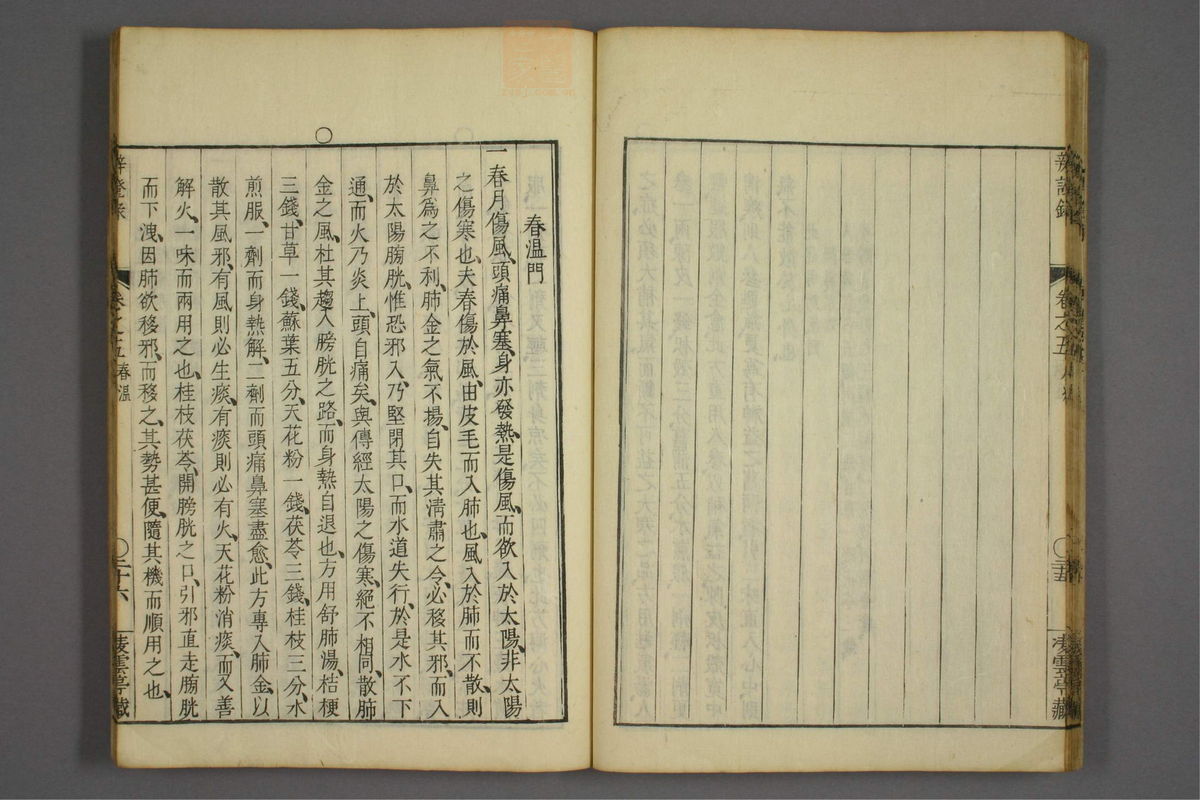 辨證錄
卷之五
三十五
凌雲亭藏
春溫門
一春月傷風頭痛鼻塞身亦發熱是傷風而欲入於太陽非太陽
之傷寒也夫春傷於風由皮毛而入肺也風入於肺而不散則
鼻為之不利肺金之氣不揚自失其淸肅之令必移其邪而入
於太陽膀胱惟恐邪入乃堅閉其口而水道失行於是水不下
通而火乃炎上頭自痛矣與傳經太陽之傷寒絕不相同散肺
○
金之風杜其趨入膀胱之路而身熱自退也方用舒肺湯桔梗
三錢甘草一錢蘇葉五分天花粉一錢茯苓三錢桂枝三分水
煎服一劑而身熱解二劑而頭痛鼻塞盡愈此方專入肺金以
散其風邪有風則必生痰有痰則必有火天花粉消痰而又善
解火一味而兩用之也桂枝茯苓開膀胱之口引邪直走膀胱
而下洩因肺欲移邪而移之其勢甚便隨其機而順用之也
辛登录
卷之五 春溫
○三十六
凌雲亭藏